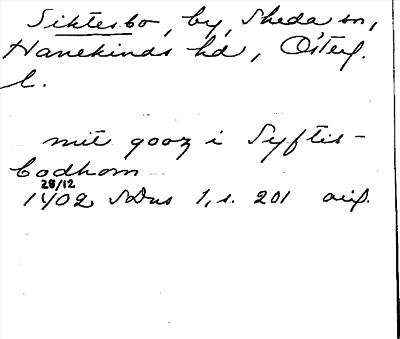 Siktesbo, by, Skeda sn,
Hanekinds hd, Österg.
l.
mit gooz i Syftis-
bodhom
28/12
1402 SDns 1, s. 201 orig.